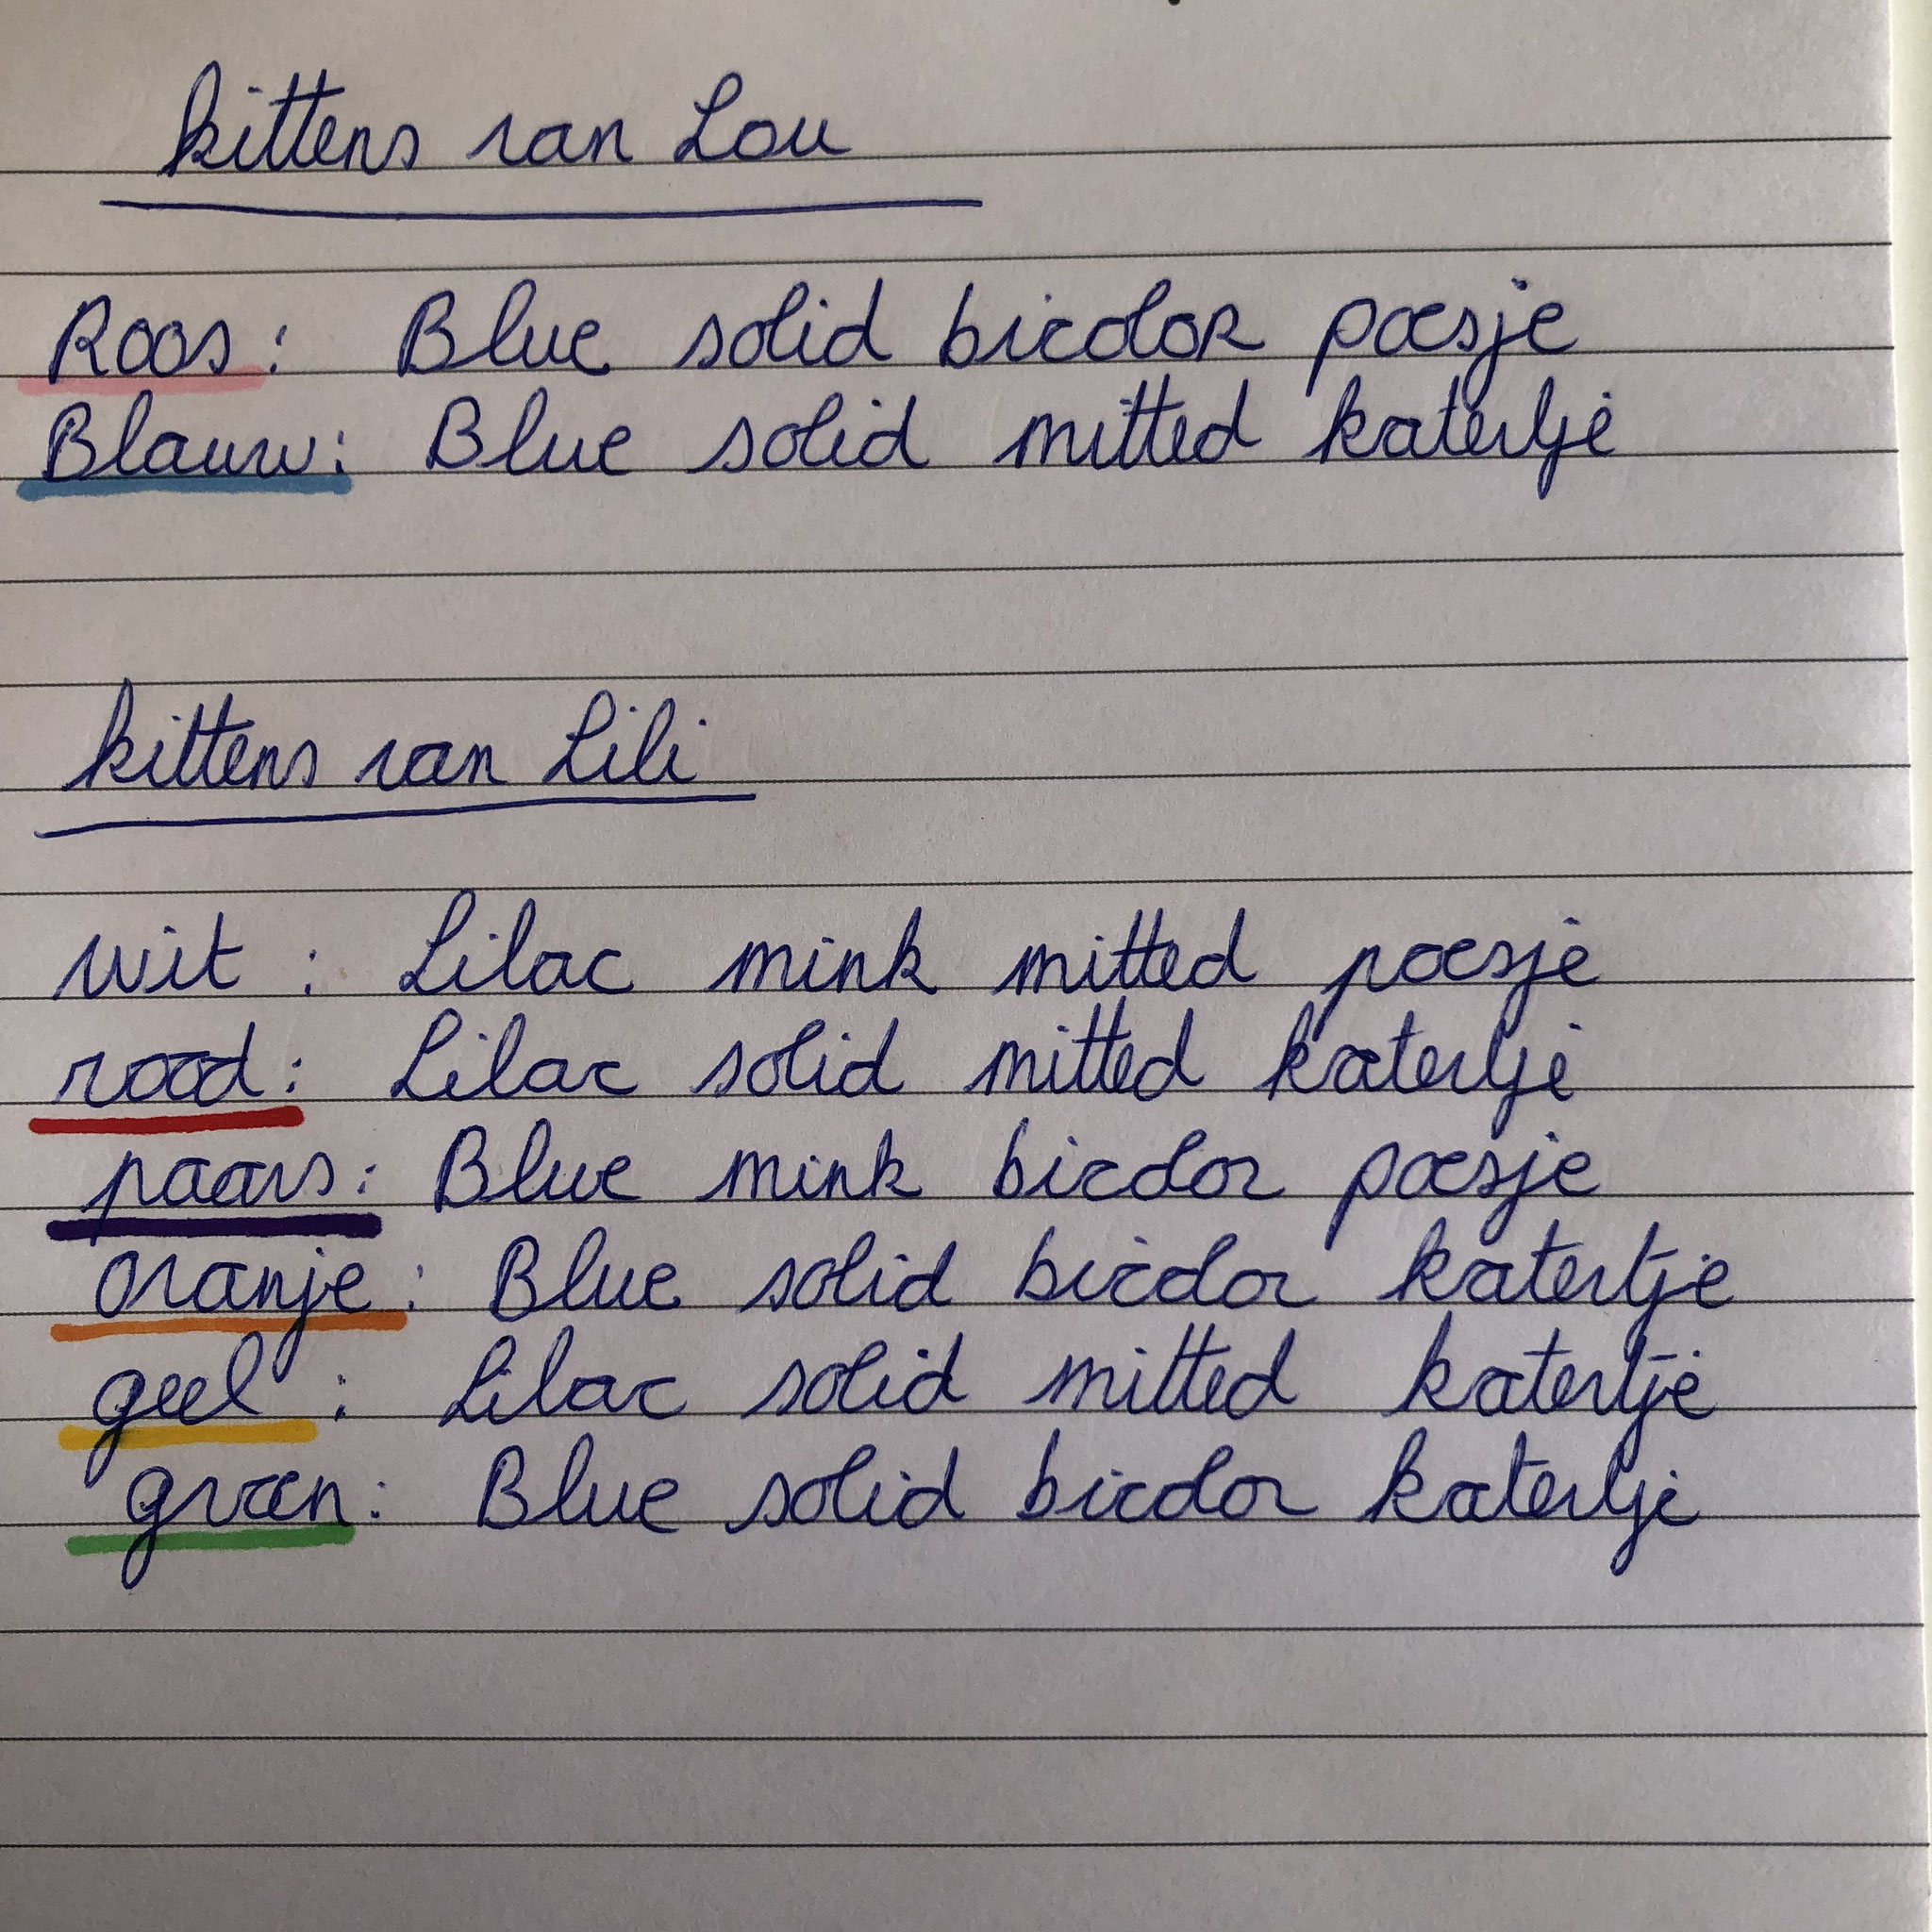 kittens van Lou
Roos: Blue solid bicolor poesje
Blauw: Blue solid mitted katertje
kittens van Lili
wit: Lilac mink mitted poesje
rood: Lilac solid mitted katertje
paars: Blue mink bicolor poesje
oranje: Blue solid bicolor katertje
geel: Lilac solid mitted katertje
groen: Blue solid bicolor katertje